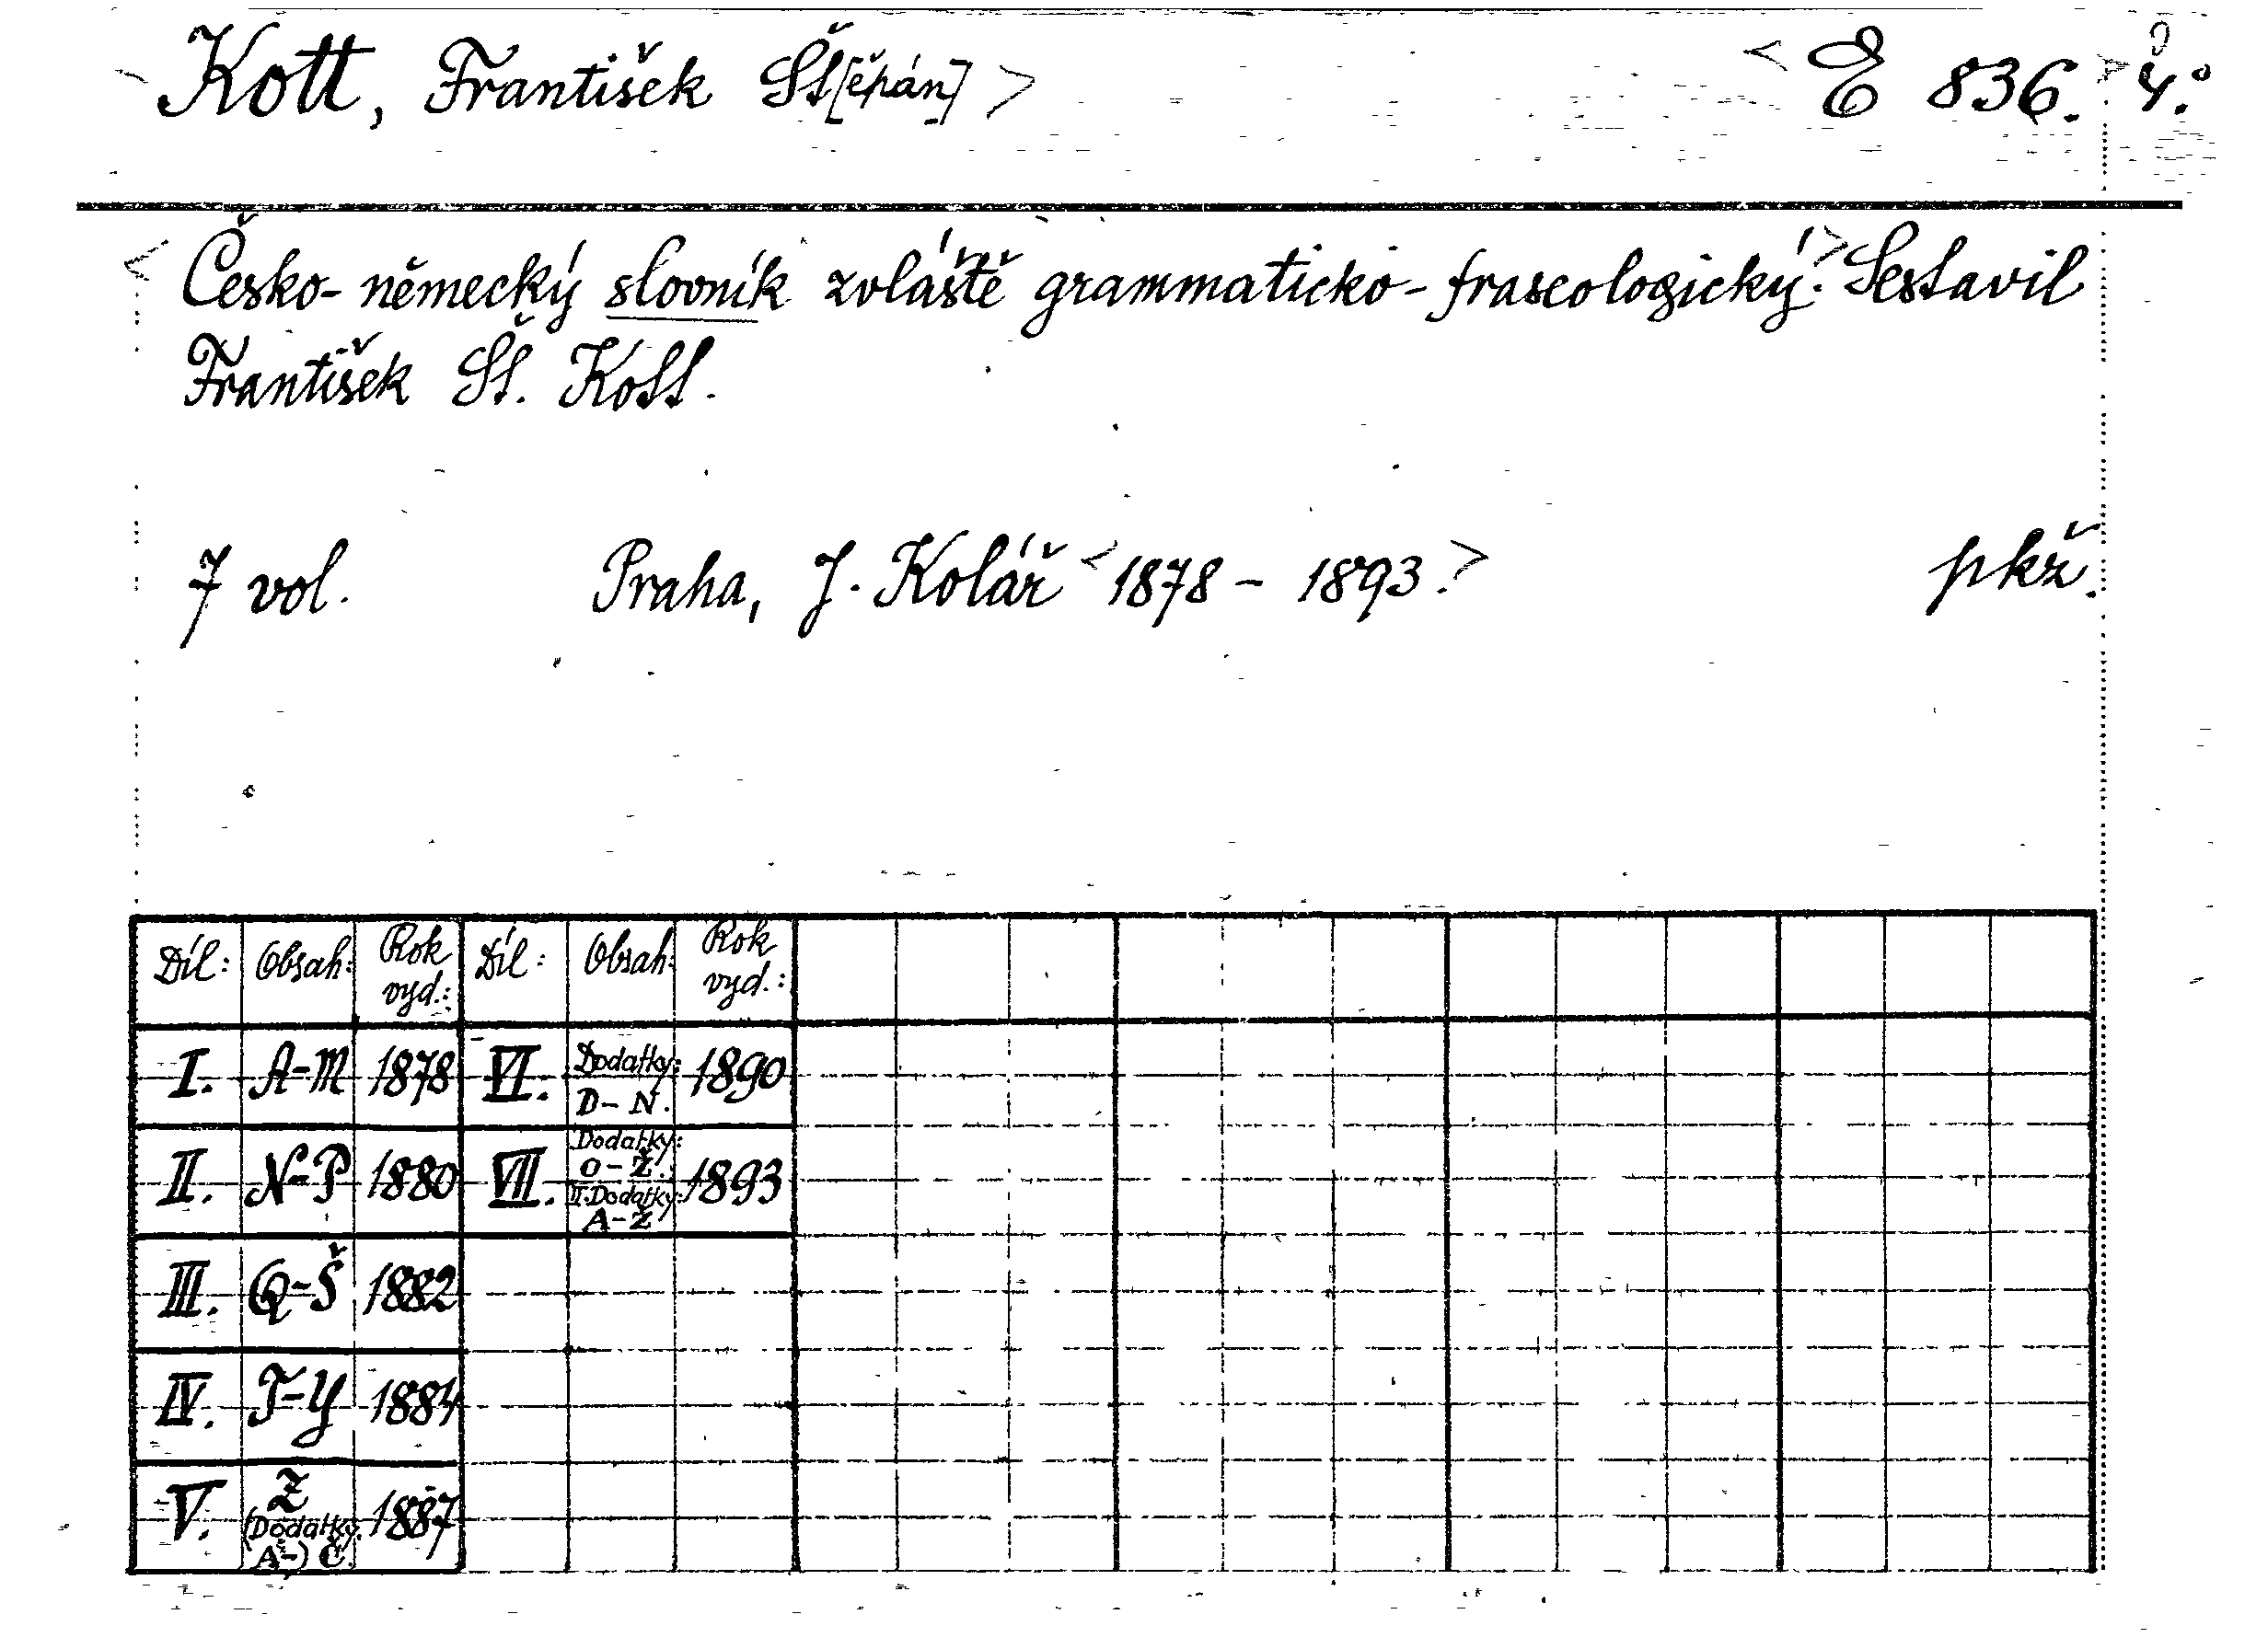 Kott, František Št[ěpán] > < E 836. > 4.°
< Česko-německý slovník zvláště grammaticko-fraseologický.> Sestavil
František Št. Kott.
7 vol. Praha, J. Kolář < 1878 - 1893. > pkž.
Díl: Obsah: Rok vyd.: Díl: Obsah: Rok vyd.:
I. A-M 1878 VI. Dodatky: D-N. 1890
II. N-P 1880 VII. Dodatky: O-Ž. II. Dodatky: A-Ž 1893
III. Q-Š 1882
IV. T-Y 1884
V. Z (Dodatky: A-) Č. 1887